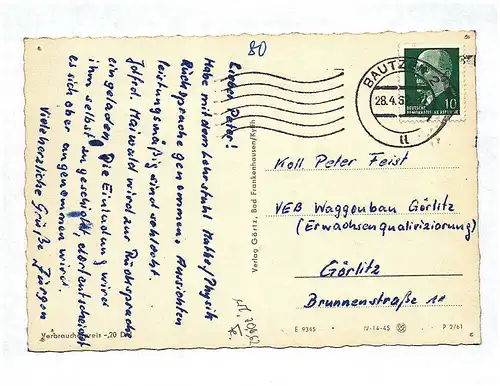 80
Lieber Peter!
Habe mit dem Lehrstuhl Mathe/Physik
Rücksprache genommen. Aussichten
leistungsmäßig sind schlecht.
Jgfrd. Maiwald wird zur Rücksprache
eingeladen. Die Einladung wird
ihm selbst zugeschickt, dort entscheidet
es sich ober angenommen wird.
Viele herzliche Grüße Jürgen
Verlag Görtz, Bad Frankenhausen/Kyffh.
BAUTZEN 2
28.4.6
u
10
DEUTSCHE
DEMOKRATISCHE REPUBLIK
Koll Peter Feist
VEB Waggonbau Görlitz
(Erwachsenqualivizierung)
Görlitz
Brunnenstraße 11
Verbraucherpreis -,20 DM
E 9345
IV-14-45
P 2/61